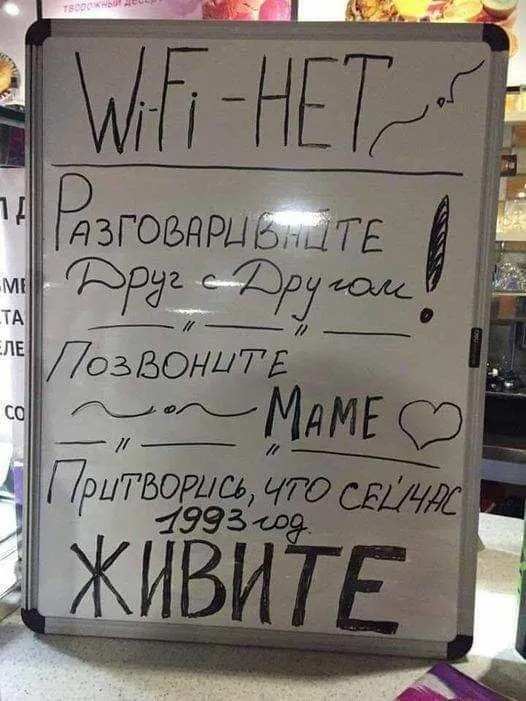 творожный десерт
Wi-Fi - НЕТ
Разговаривайте
Друг с Другом!
Позвоните
Маме
Притворись, что сейчас
1993 год
ЖИВИТЕ